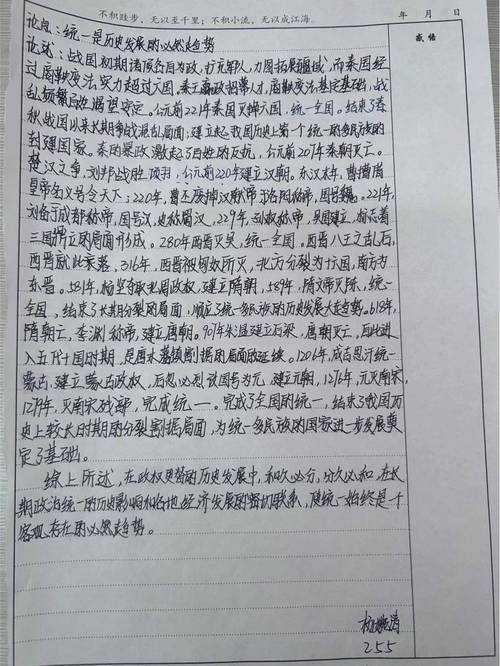 不积跬步，无以至千里；不积小流，无以成江海。
年 月 日
感悟
论题：统一是历史发展的必然趋势
论述：战国初期诸侯各自为政，扩充军队，力图拓展疆域，而秦国经
过商鞅变法实力超过六国，秦王嬴政招募人才，商鞅变法奠定基础，战
乱频繁百姓渴望安定。公元前221年秦国灭掉六国，统一全国。结束了春
秋战国以来长期争战混乱局面，建立起我国历史上第一个统一的多民族的
封建国家。秦的暴政激起了百姓的反抗，公元前207年秦朝灭亡。
楚汉之争，刘邦战胜项羽，公元前220年建立汉朝。东汉末年，曹操借
皇帝名义号令天下；220年，曹丕废掉汉献帝于洛阳称帝，国号魏。221年，
刘备于成都称帝，国号汉，史称蜀汉，229年，孙权称帝，吴国建立，标志着
三国鼎立的局面形成。280年西晋灭吴，统一全国。西晋八王之乱后，
西晋就此衰落，316年，西晋被匈奴所灭，北方分裂为十六国，南方为
东晋。581年，杨坚夺取北周政权，建立隋朝，589年，隋文帝灭陈，统一
全国。结束了长期分裂的局面，顺应了统一多民族的历史发展大趋势。618年，
隋朝亡，李渊称帝，建立唐朝。907年朱温建立后梁，唐朝灭亡，后此进
入五代十国时期，是唐末藩镇割据的局面的延续。1206年，成吉思汗统一
蒙古，建立蒙古政权，后忽必烈改国号为元，建立元朝，1276年，元灭南宋，
1279年，灭南宋残部，完成统一。完成了全国的统一，结束了我国历
史上较长时期的分裂割据局面，为统一多民族的国家进一步发展奠
定了基础。
综上所述，在政权更替的历史发展中，和久必分，分久必和，在长
期政治统一的历史影响和各地经济发展的密切联系，使统一始终是一个
客观存在的必然趋势。
255